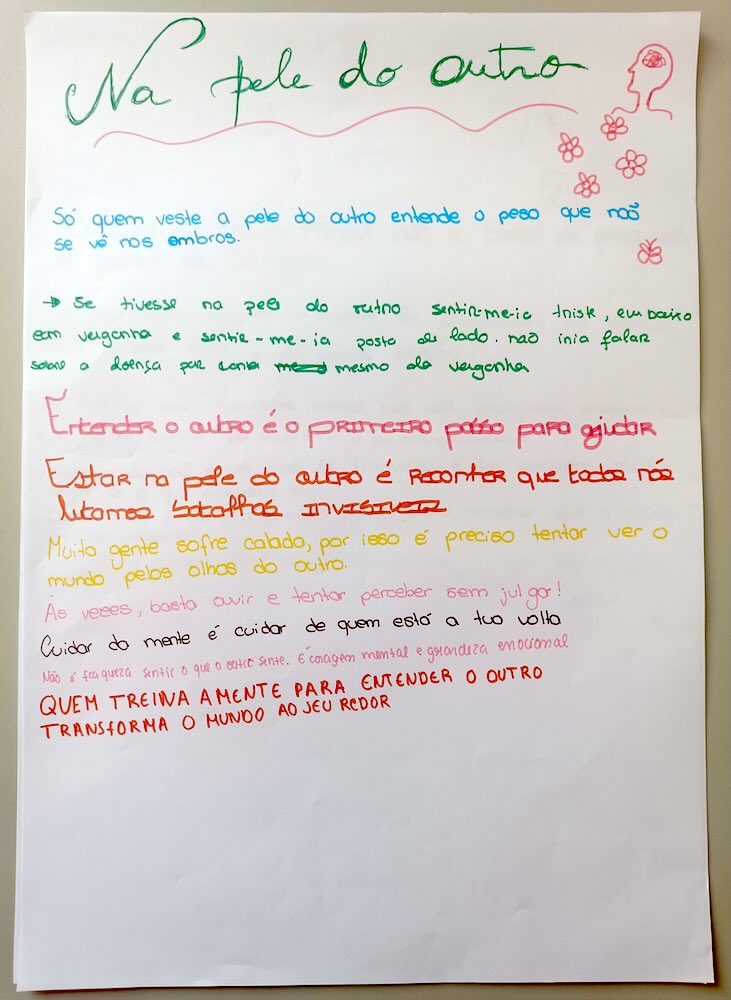 Na pele do outro
Só quem veste a pele do outro entende o peso que naõ
se vê nos embros.
→ Se tivesse na pele do outno sentir-me-ia triste, em baixo
com vergonha e sentir-me-ia posta de lado. não iria falar
sobre a doença por conta mesmo da vergonha
Entender o outro é o primeiro passo para ajudar
Estar na pele do outro é reconher que todos nós
lutamos batalhas INVISIVEIS
Muita gente sofre calado, por isso é preciso tentar ver o
mundo pelos olhos do outro.
As vezes, basta ouvir e tentar perceber sem julgar!
Cuidar da mente é cuidar de quem está a tua volta
Não é fraqueza sentir o que o outro sente. É coragem mental e grandeza emocional
QUEM TREINA A MENTE PARA ENTENDER O OUTRO
TRANSFORMA O MUNDO AO SEU REDOR